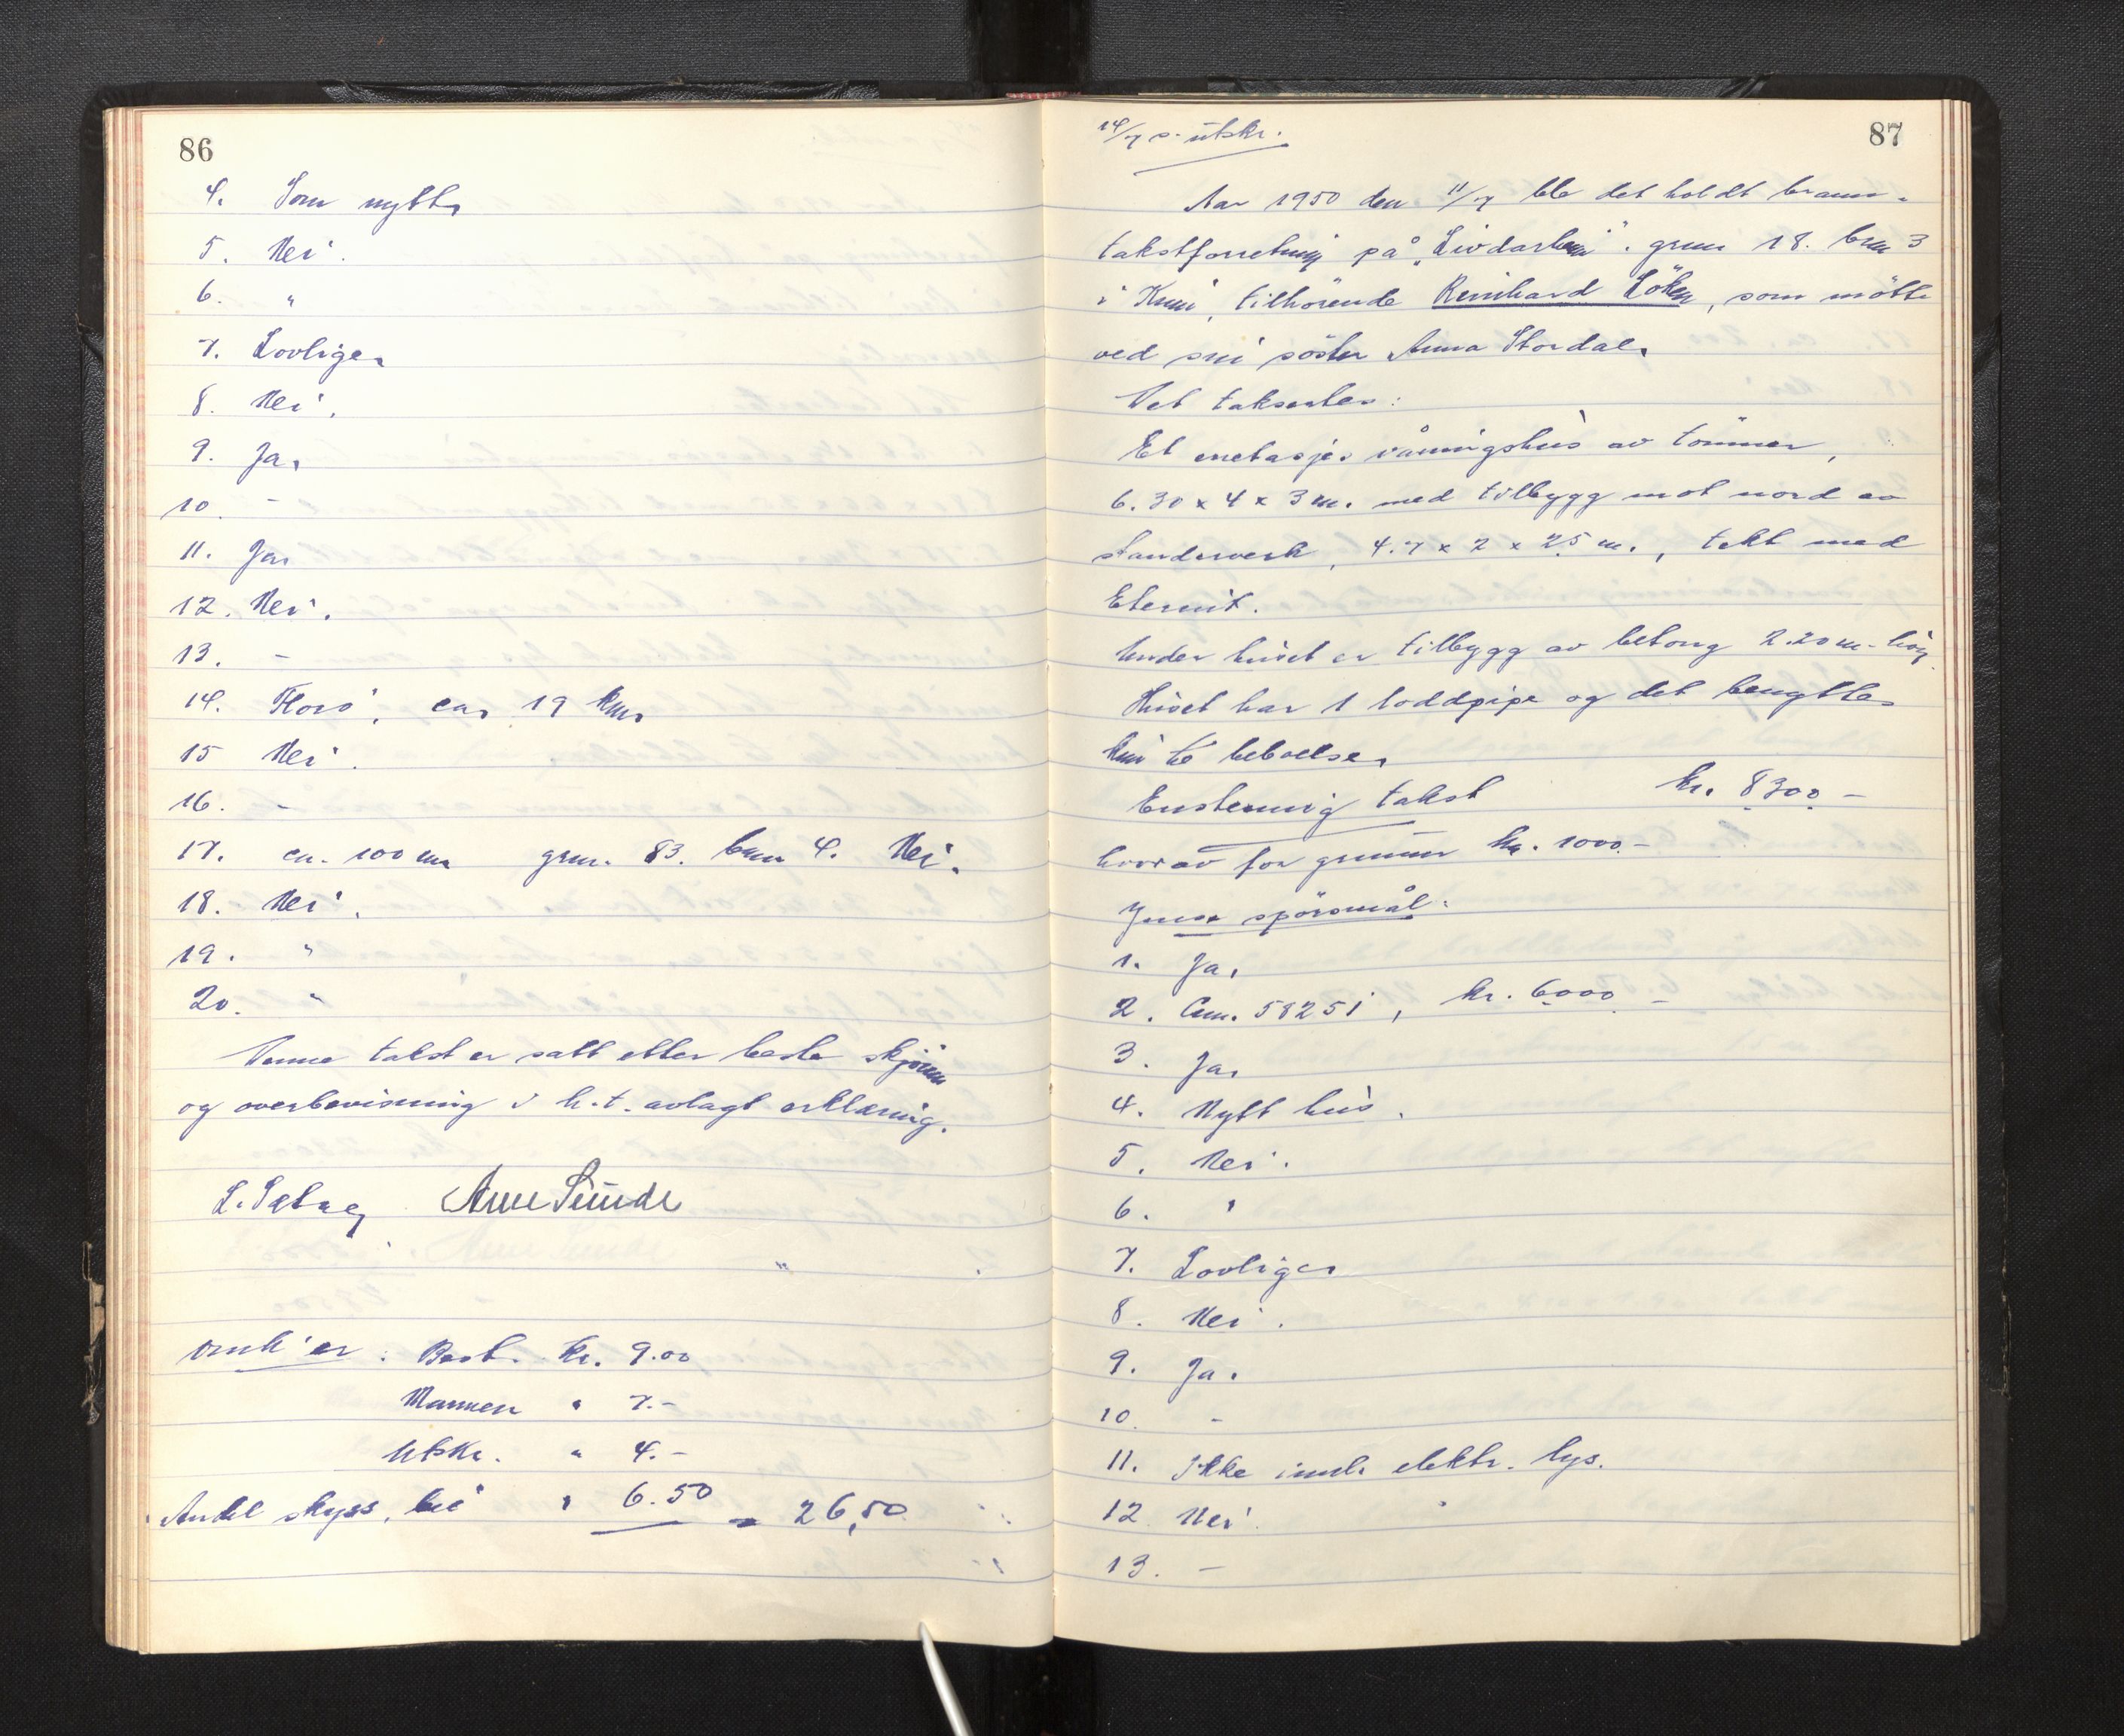 86
4. Som nytt.
5. Nei.
6. "
7. Lovlige.
8. Nei.
9. Ja.
10. -
11. Ja.
12. Nei.
13. -
14. Florö, ca. 19 km.
15 Nei.
16. -
17. ca. 100 m. gnr. 83. bnr 4. Nei.
18. Nei.
19. "
20. "
Denne takst er satt etter beste skjönn
og overbevisning i h.t. avlagt erklæring.
Arne Sunde
Omk'er: Best. kr. 9.00
Mannen " 7.-
Utskr. " 4.-
Andel skyss, bil " 6.50 = 26,50
87
14/7 s. utskr.
Aar 1950 den 11/7 ble det holdt brann-
takstforretning på gnr 18. bnr 3
i Kinn, tilhörende Reinhard Löken, som mötte
ved sin söster Anna Stordal.
Det takseres:
Et enetasjes våningshus av tömmer,
6.30 x 4 x 3 m. med tilbygg mot nord av
standerverk, 4.7 x 2 x 2.5 m., tekt med
Eternit.
Under huset er tilbygg av betong 2.20 m. höy.
Huset har 1 loddpipe og det benyttes
kun til beboelse.
Enstemmig takst kr. 8300 -
hvorav for grunnmur kr. 1000.-
Jmsr spörsmål:
1. Ja.
2. Ass. 58251, kr. 6000 -
3. Ja.
4. Nytt hus.
5. Nei.
6. "
7. Lovlige.
8. Nei.
9. Ja.
10. -
11. Ikke innl. elektr. lys.
12 Nei.
13. -